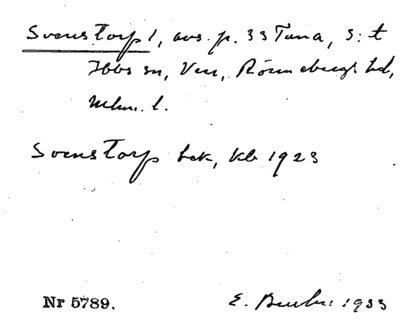 Svenstorp 1, avs. p. 33 Tuna, S:t
Ibbs sn, Ven, Rönnebergs hd,
Mlm. l.
Svenstorp bek, kb 1923
Nr 5789.
E. 1933